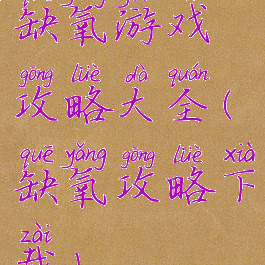 缺氧游戏
gōng lüè dà quán
攻略大全(
quē yǎng gōng lüè xià
缺氧攻略下
zài
载)